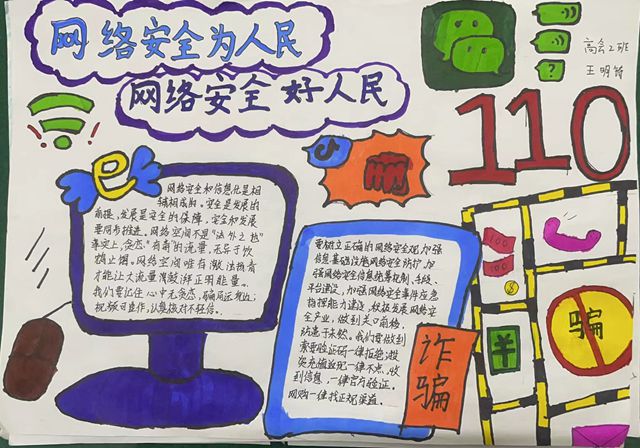 网络安全为人民
网络安全 好人民
高会2班
王明
?
110
e
网络安全和信息化是相
辅相成的。安全是发展的
前提,发展是安全的保障,安全和发展
要同步推进。网络空间不是“法外之地”
事实上,
“有毒”的流量,无异于饮
鸩止渴。网络空间唯有激浊扬清
才能让大流量澎湃正能量。
我们要记住心中无贪念,骗局远离
要树立正确的网络安全观,加强
信息基础设施网络安全防护,加
强网络安全信息统筹机制、手段、
平台建设,加强网络安全事件应急
指挥能力建设,积极发展网络安
全产业,做到关口前移,
防患于未然。我们要做到
索要验证码一律拒绝,
链接一律不点,收
到信息,一律官方验证。
网购一律找正规渠道。
诈
骗
骗
¥